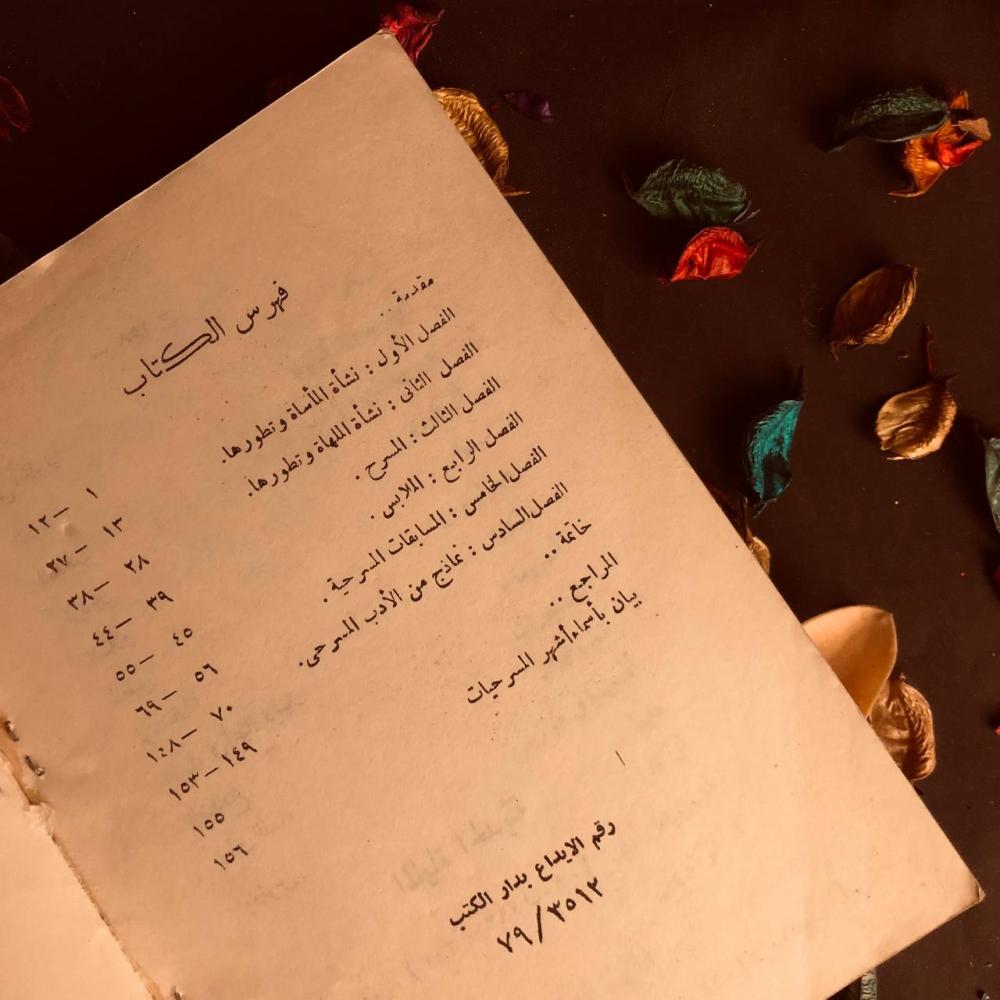 فهرس الكتاب
مقدمة .. ١ — ١٢
الفصل الأول : نشأة المأساة وتطورها. ١٣ — ٢٧
الفصل الثانى : نشأة الملهاة وتطورها. ٢٨ — ٣٨
الفصل الثالث : المسرح . ٣٩ — ٤٤
الفصل الرابع : الملابس . ٤٥ — ٥٥
الفصل الخامس : المسابقات المسرحية . ٥٦ — ٦٩
الفصل السادس : نماذج من الأدب المسرحى. ٧٠ — ١٤٨
خاتمة .. ١٤٩ — ١٥٣
المراجع .. ١٥٥
بيان بأسماء أشهر المسرحيات ١٥٦
رقم الايداع بدار الكتب
٧٩/٣٥١٢